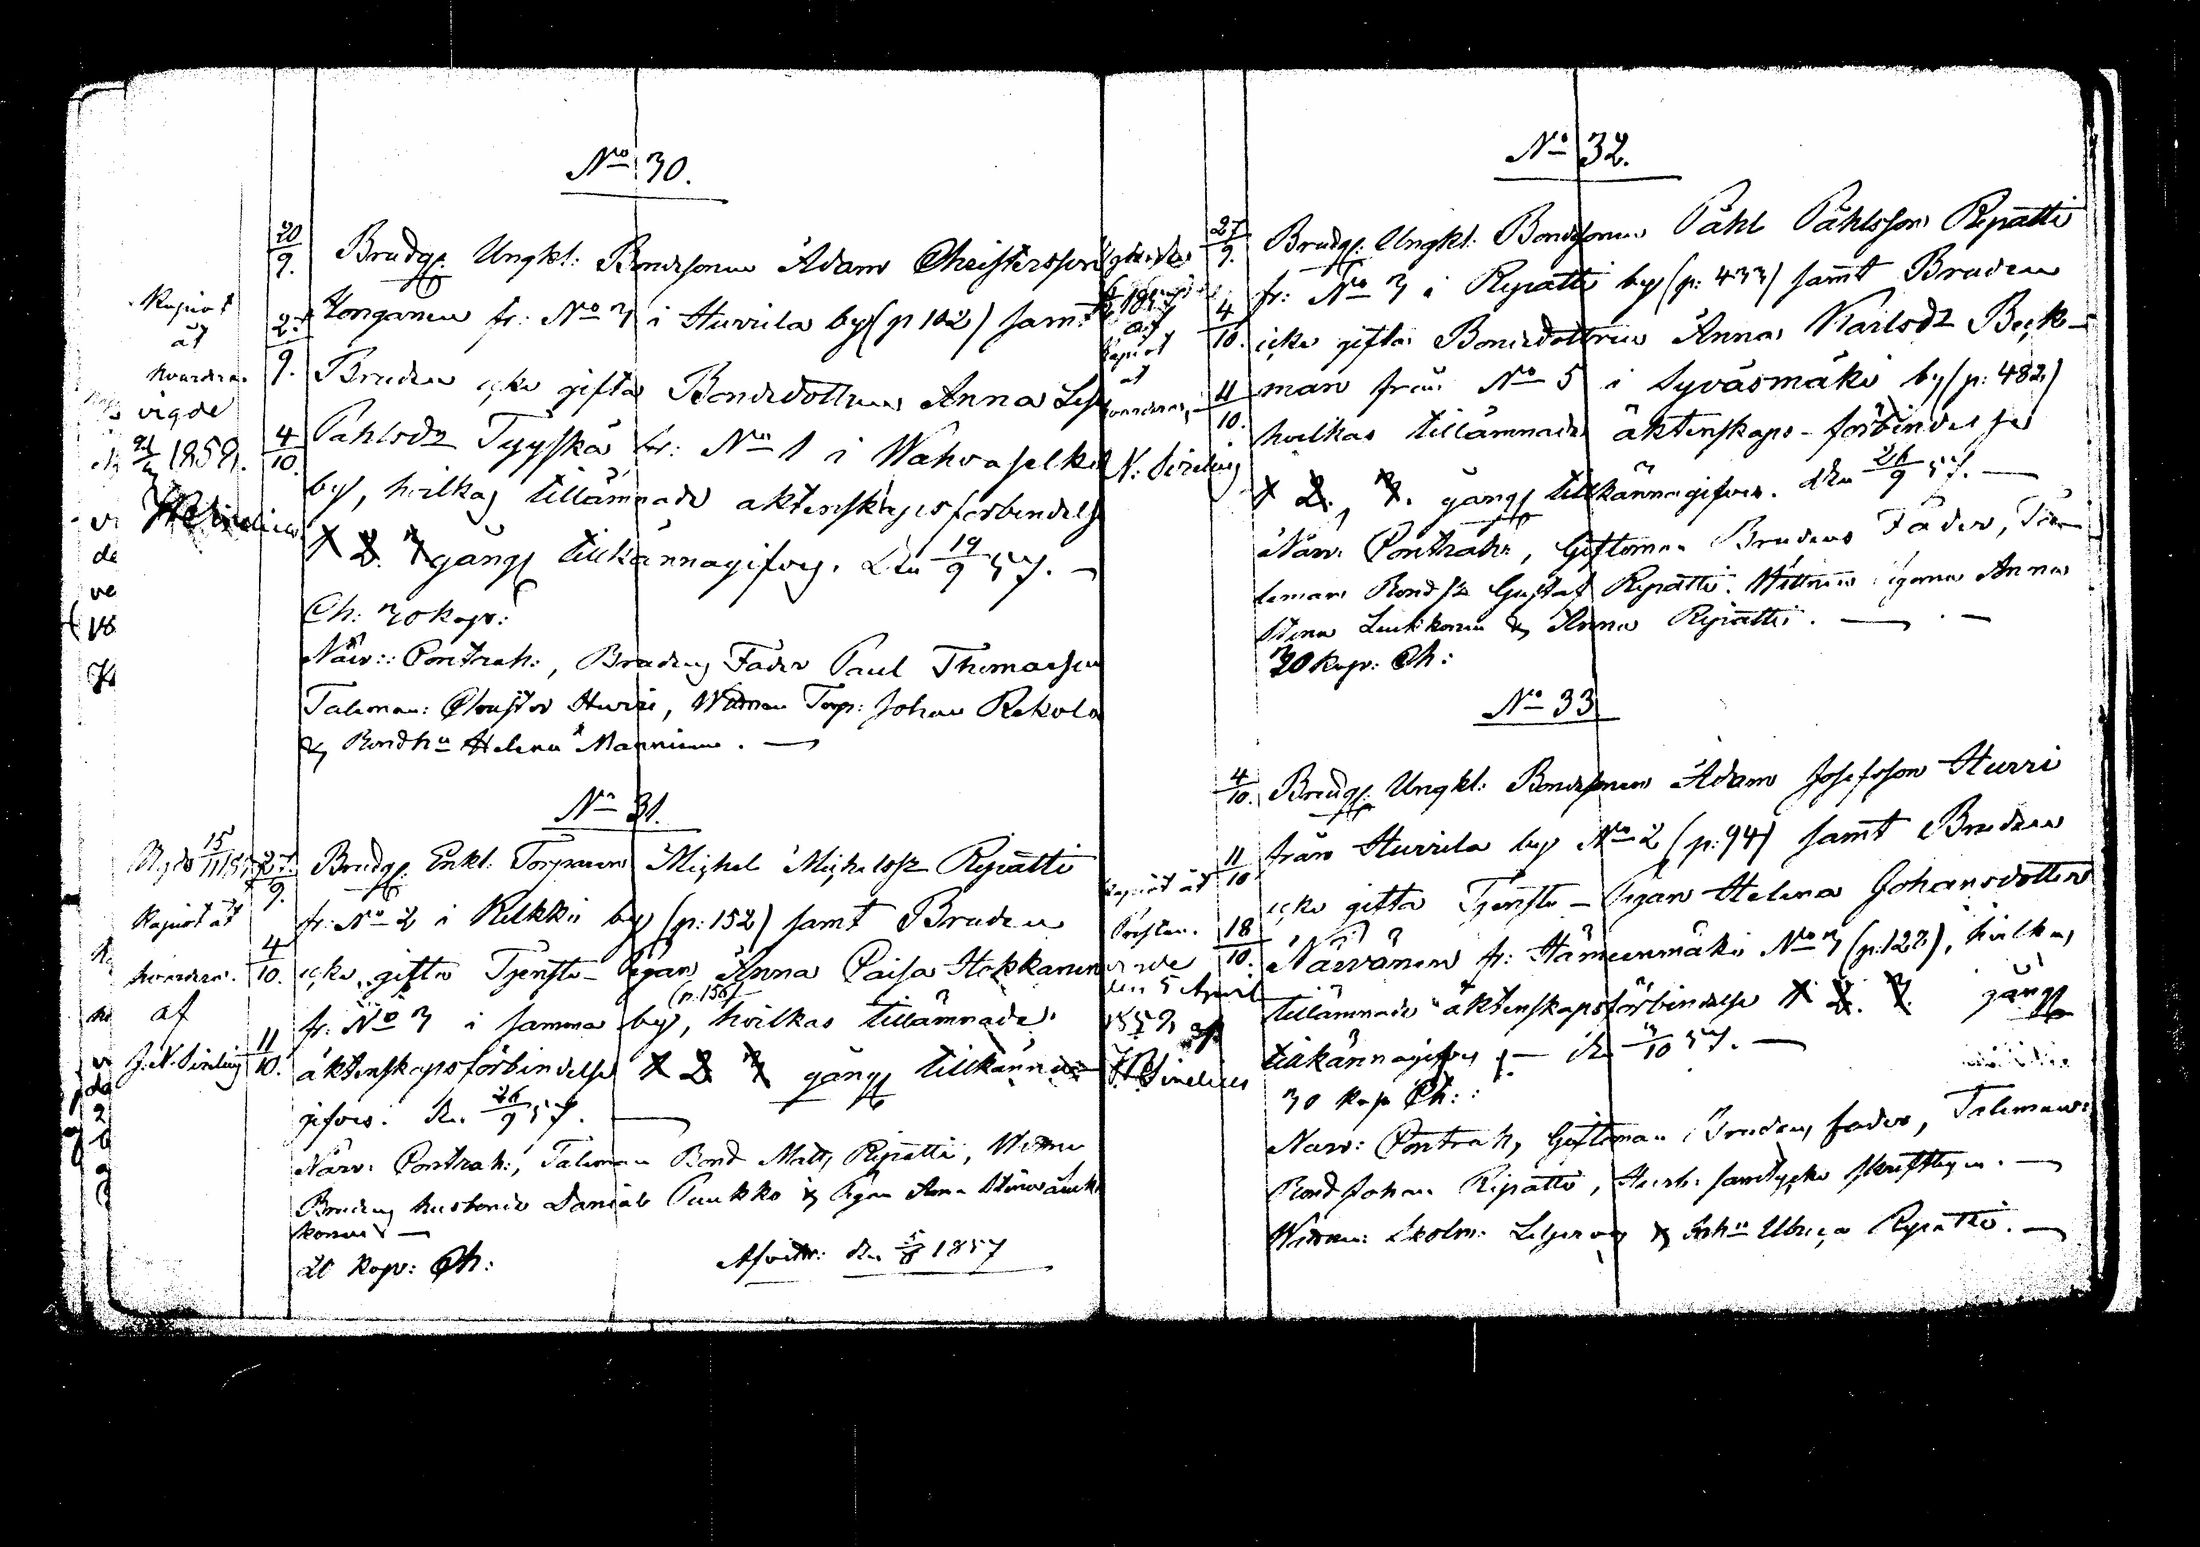 No 30.
20/9.
Brudg. Ungkl: Bondesonen Adam Christersson
27/9.
Konganen fr: No 3 i Hurrila by (p 102) samt
Bruden icke gifta Bondedottren Anna Lisa
4/10.
Påhlsdr Tyyskä fr: No 1 i Wahvaselkä
by, hvilkas tillämnade äktenskapsförbindelse
1 2. 3 gång tillkännagifves. den 19/9 57. —
Ch: 30 kop:
Närv: Contrah:, Brudens Fader Paul Thomasson
Taleman: Hurri, Wittnen Torp: Johan Rekola
& Bondhu Helena Manninen. —
Kapiat
åt
hvardera.
vigde
1858.
No 31.
Vigde 15/11 1857
27/9.
Brudg. Enkl: Torparen Michel Michelss: Repatti
fr: No 2 i Kelkki by (p: 152) samt Bruden
4/10.
icke gifta Tjenste-Pigan Anna Caisa Hokkanen
(p. 156)
fr: No 3 i samma by, hvilkas tillämnade
11/10.
äktenskapsförbindelse 1 2 3 gång tillkänna
gifves. den 26/9 57. —
Närv: Contrah:, Taleman Bond Matts Repatti, Wittne
Brudens husbonde Daniel Puukko & Pigan Anna Stina Leuk
konen —
20 kop: Ch:
Afvittr: den 5/8 1857
Kapiat åt
hvardera.
af
J.N. Sirelius
No 32.
27/9.
Brudg. Ungkl: Bondesonen Påhl Påhlsson Repatti
fr: No 3 i Repatti by (p: 433) samt Bruden
4/10.
icke gifta Bondedottren Anna Karlsdr Beck-
11/10.
man från No 5 i Syväsmäki by (p: 482)
hvilkas tillämnade äktenskaps-förbindelse
1 2. 3. gång tillkännagifves. den 26/9 57. —
Närv: Contrah:, Giftoman Brudens Fader, Ta-
leman Bondss Gustaf Repatti. Wittnen Pigorna Anna
Stina Leukkonen & Anna Repatti. —
30 kop: Ch:
1857
af
Kapiat
åt
hvardera,
N: Sirelius
No 33
4/10.
Brudg. Ungkl: Bondesonen Adam Josefsson Hurri
11/10
från Hurrila by No 2 (p: 94) samt Bruden
icke gifta Tjenste-Pigan Helena Johansdotter
18/10.
Närvänen fr: Hämeenmäki No 3 (p: 127), hvilkas
tillämnade äktenskapsförbindelse 1 2. 3. gång
tillkännagifves — den 3/10 57. —
30 kop Ch:
Närv: Contrah, Giftoman Brudens fader, Taleman:
Bond Johan Repatti, Husb: samtycke skriftligen. —
Wittnen: & Ulrica Repatti. —
Kapiat åt
Presten.
den 5 April
1858, af
Sirelius